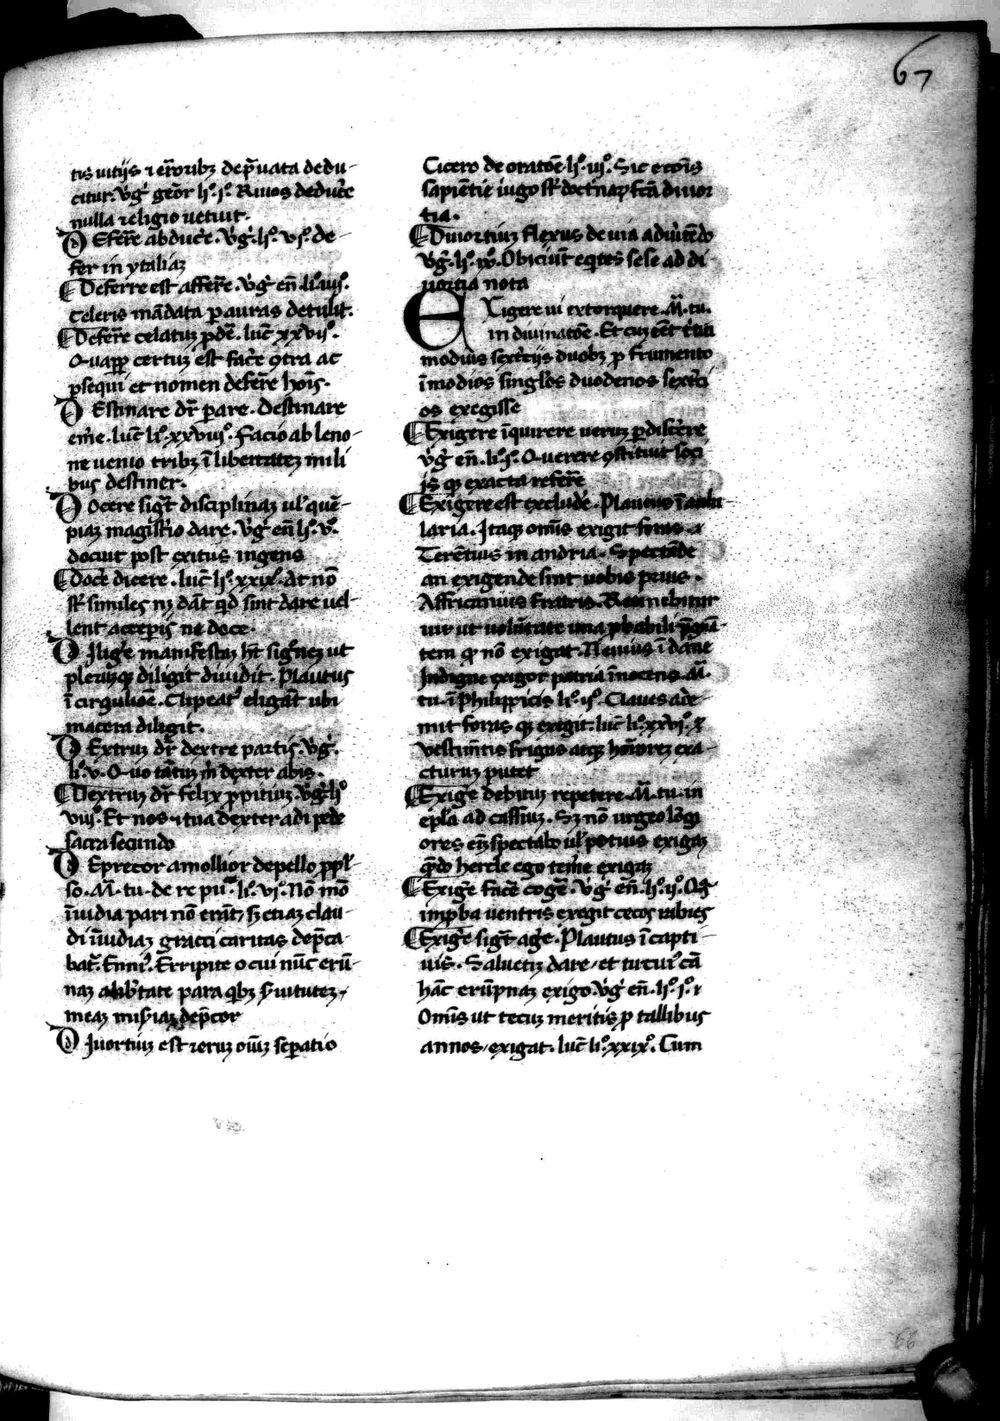 67
tis uitijs ⁊ erroribꝫ dep̃uata dedu-
citur. Vg̃. geor̃ li°. i°. Riuos deduc̃e
nulla religio uetuit.
Deferre abducẽ. Vg̃. li°. vi°. de-
fer in ytaliaꝫ
¶ Deferre est afferre. Vg̃. en̄. li°. iiii°.
Celeris mãdata p auras detulit.
¶ Deferre celatuꝫ pdẽ. luc̃ xxvii°.
Quapp certuꝫ est facẽ ꝯtra ac
psequi et nomen deferre hoĩs.
Destinare dr̃ parare. Destinare
em̃e. luc̃ li°. xxviiii°. Facio ab leno-
ne uenio tribꝫ ĩ libertateꝫ mili
bus destiner.
Docere sigr̃ disciplinaꝫ ul' quẽ-
piaꝫ magistrio dare. Vg̃ en̄ li°. v°.
docuit post exitus ingens
¶ Docẽ dicere. luc̃ li°. xxix°. At nõ
st̃ similes nꝫ dãt qd sint dare uel-
lent acceperis ne doce.
Diligẽ manifestuꝫ ht̃ signuꝫ ut
pleriqꝫ diligit diuidit. Plautus
ĩ cirqulione. Clipeat' eligãt ubi
macera diligit.
Dextruꝫ dr̃ dextre partis. Vg̃.
li°. v. Quo tãtuꝫ m̃ dexter abis.
¶ Dextruꝫ dr̃ felix ppitiuꝫ. Vg̃. li°
viii°. Et nos ⁊ tua dexter adi pede
sacra secundo
Deprecor amollior depello ppl'
so. M. tu. de re pu°. li°. vi°. Nõ mõ
ĩuidia pari nõ erãt, sꝫ etiaꝫ clau-
di ĩuidiaꝫ gracci caritas dep̃ca-
bat̃. Enni°. Erripite o cui nũc erũ-
naꝫ para qbꝫ suitutez
meaꝫ misiaꝫ dep̃cor
Diuortiuꝫ est reruꝫ oũiꝫ sepatio
Cicero de oratoẽ li°. iii°. Sic e coĩs
sapiẽtie iugo st̃ doctrinaꝝ fcã diuor
tia.
¶ Diuortiuꝫ flexus de uia aduertẽdo
Vg̃. li°. ix°. Obiciũt eqtes sese ad di
uortia nota
Eligere ui extorquere. M. tu.
in diuinatoẽ. Et cuꝫ eẽt triti
modius sext̃ijs duobꝫ p frumento
ĩ modios singlos duodenos sext̃i
os exegisse
¶ Exigere ĩquirere ueruꝫ pdiscere
Vg̃ en̄. li°. i°. Querere ꝯstituit soci
js qꝫ exacta referre
¶ Exigere est excludẽ. Plautus ĩ aulu
laria. Itaqꝫ omĩs exigit foras ⁊
Terẽtius in andria. Spectãde
an exigende sint uobis prius.
Affricanius fratris.
uir ut uolũtate una p̃gnã
tem qꝫ nõ exigat. Neuius ĩ dane
Indigne exigor patria ĩnocens. M.
tu. ĩ Philippicis li°. ii°. Claues ade-
mit foras qꝫ exegit. luc̃ li°. xxvi°. ⁊
vestimẽtis frigus atqꝫ horroreꝫ exa-
cturuꝫ putet
¶ Exigẽ debituꝫ repetere. M. tu. in
epla ad cassiuꝫ. Sꝫ nõ urgeo lõgi
ores em̃ spectabo ul' potius exigaꝫ
qñdo hercle ego teme exigaꝫ
¶ Exigẽ facẽ cogẽ. Vg̃ en̄. li°. ii°. Qs̃
impba uentris exegit cecos rabies
¶ Exigẽ sigr̃ agẽ. Plautus ĩ capti-
uis. Saluetiꝫ dare, et tu cui' cã
hãc erũpnaꝫ exigo. Vg̃ en̄. li°. i°. ⁊
Omĩs ut tecuꝫ meritis p tallibus
annos, exigat. luc̃ li°. xxix°. Cum
66